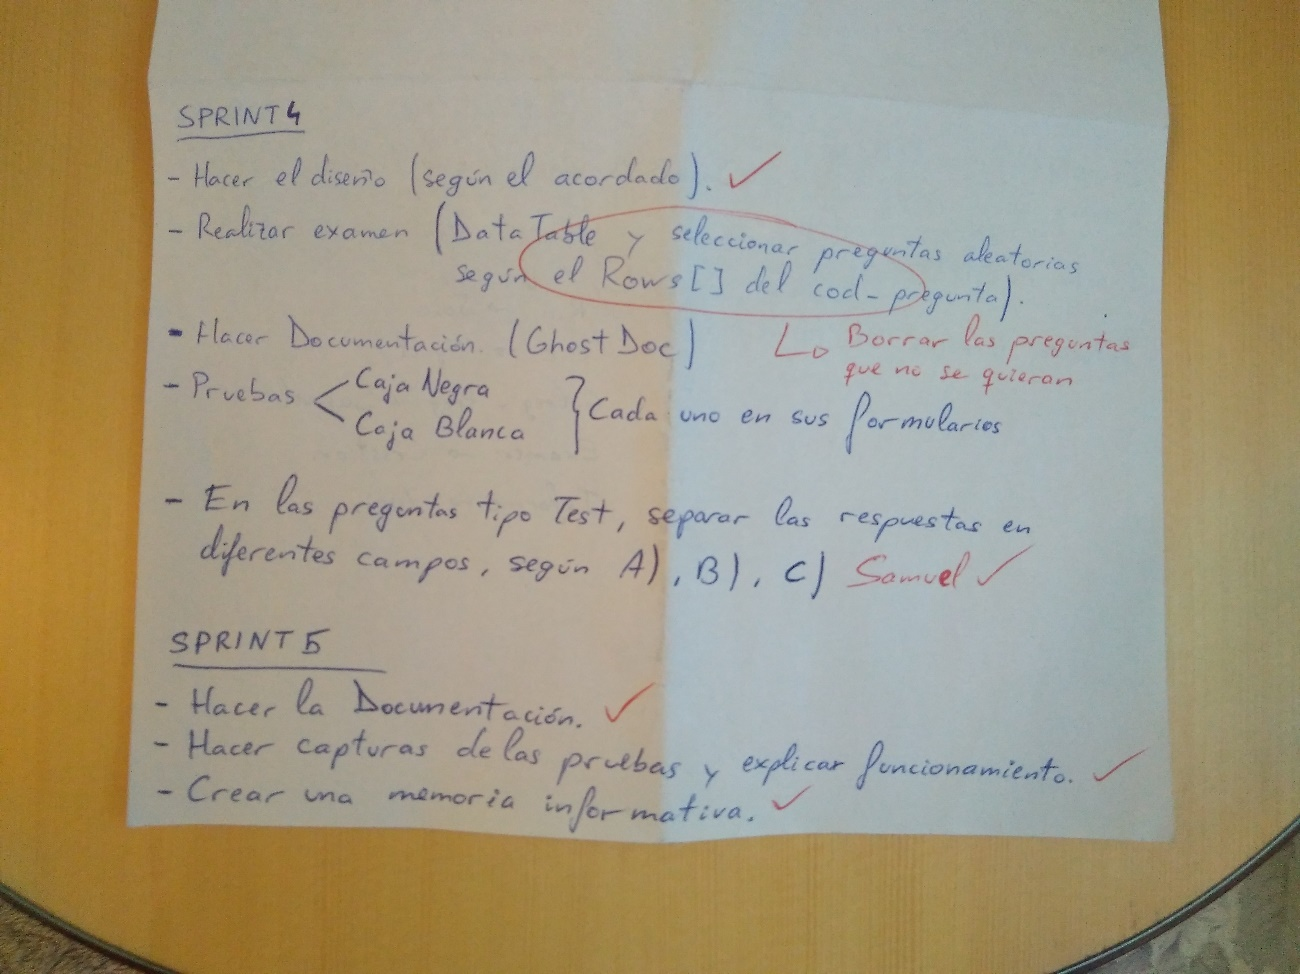 SPRINT 4
- Hacer el diseño (según el acordado). ✓
- Realizar examen (DataTable y seleccionar preguntas aleatorias
según el Rows[] del cod_pregunta).
- Hacer Documentación. (GhostDoc)
Borrar las preguntas
que no se quieran
- Pruebas
Caja Negra
Caja Blanca
} Cada uno en sus formularios
- En las preguntas tipo Test, separar las respuestas en
diferentes campos, según A), B), C) Samuel ✓
SPRINT 5
- Hacer la Documentación. ✓
- Hacer capturas de las pruebas y explicar funcionamiento. ✓
- Crear una memoria informativa. ✓